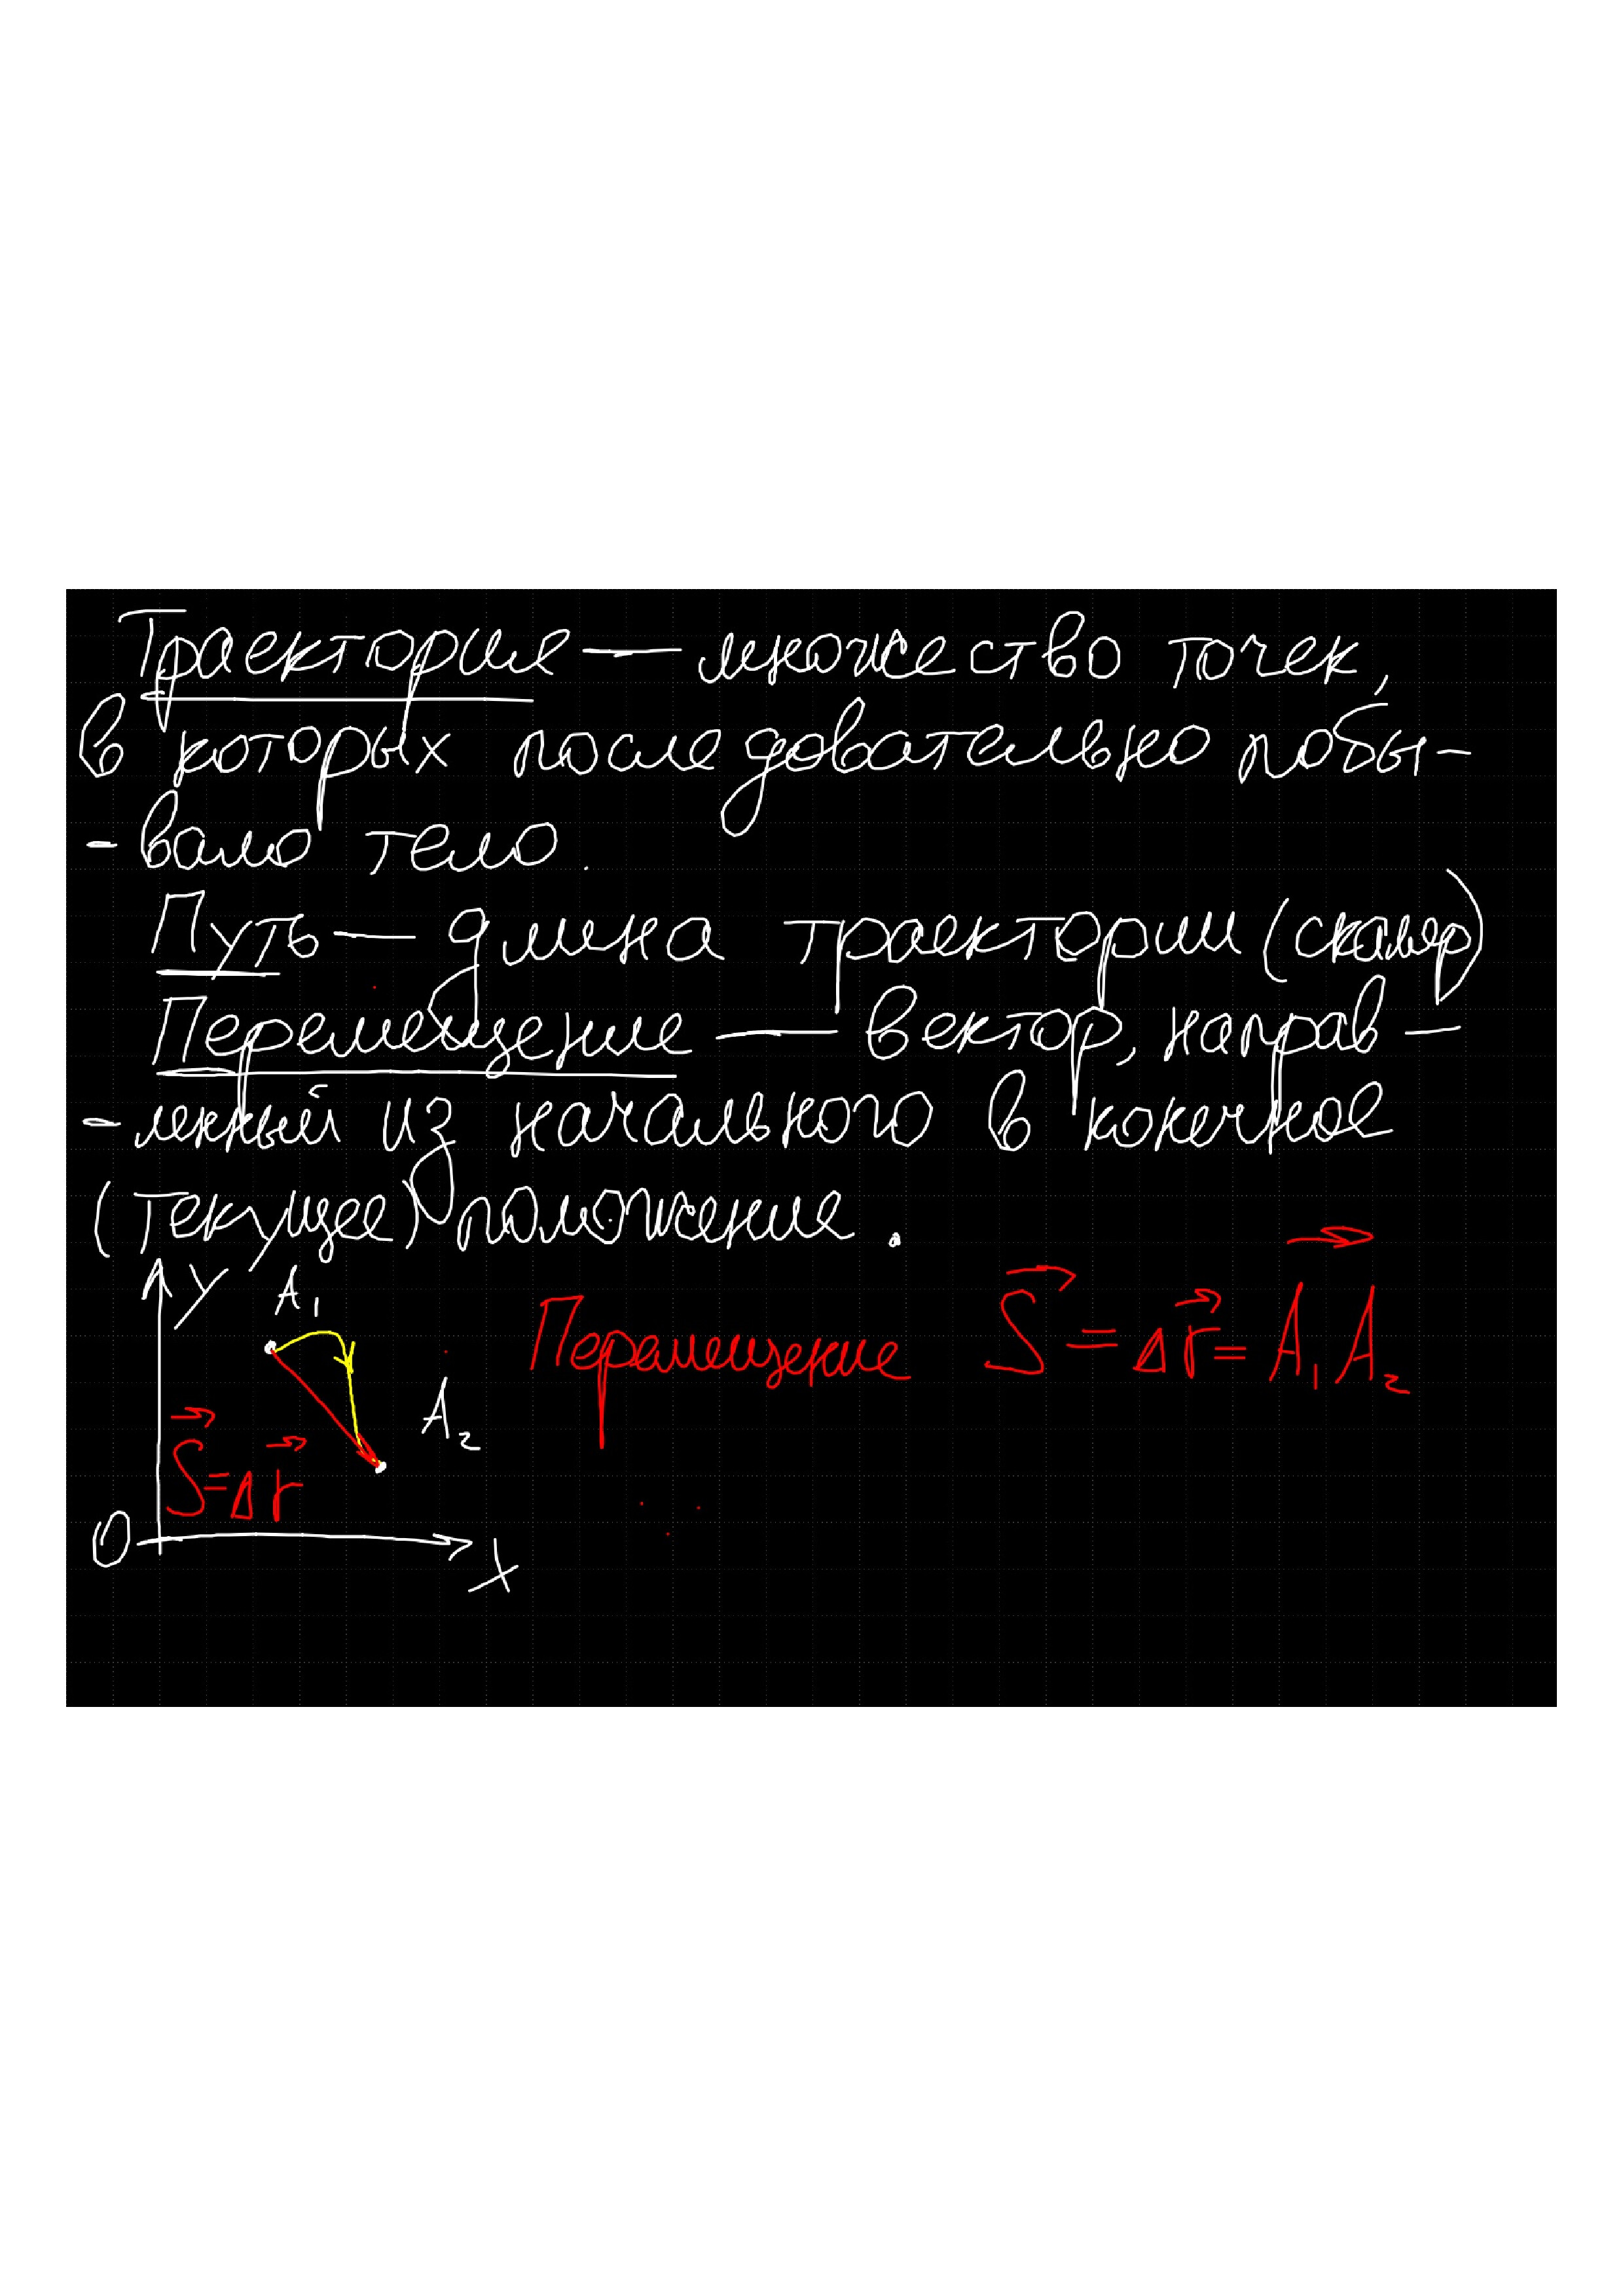 Траектория — множество точек,
в которых последовательно побы-
-вало тело.
Путь — длина траектории (скаляр)
Перемещение — вектор, направ-
-ленный из начального в конечное
(текущее) положение.
y A₁
Перемещение S⃗ = Δr⃗ = A₁A₂
A₂
S⃗ = Δr⃗
O
x